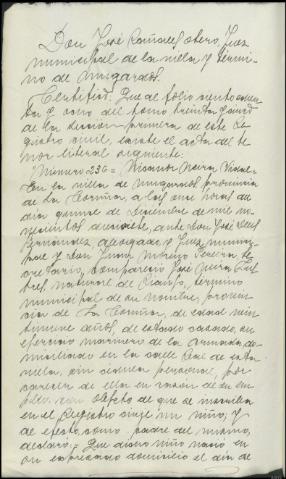 Don José Cañales Otero, Juez
municipal de la villa y térmi-
no de Mugardos.
Certifico: Que al folio ciento
y del tomo treinta
de la sección primera de este Re-
gistro civil, consta el acta del te-
nor literal siguiente:
Número 236 = Vicente Neira Vidal =
En la villa de Mugardos provincia
de La Coruña, a las once horas del
día quince de Diciembre de mil no-
vecientos diecisiete, ante Don José
Fernández abogado, y Juez munici-
pal y Don Juan Pereira Se-
cretario, compareció José Neira
natural de término
municipal de su nombre, provin-
cia de La Coruña, de edad vein-
tinueve años, de estado casado, su
ejercicio marinero de la armada, do-
miciliado en la calle Real de esta
villa, sin cédula personal, por
carecer de ella en razón de su em-
pleo con objeto de que se inscriba
en el Registro civil un niño, y
al efecto como padre del mismo,
declaró: = Que dicho niño nació en
su expresado domicilio el día de